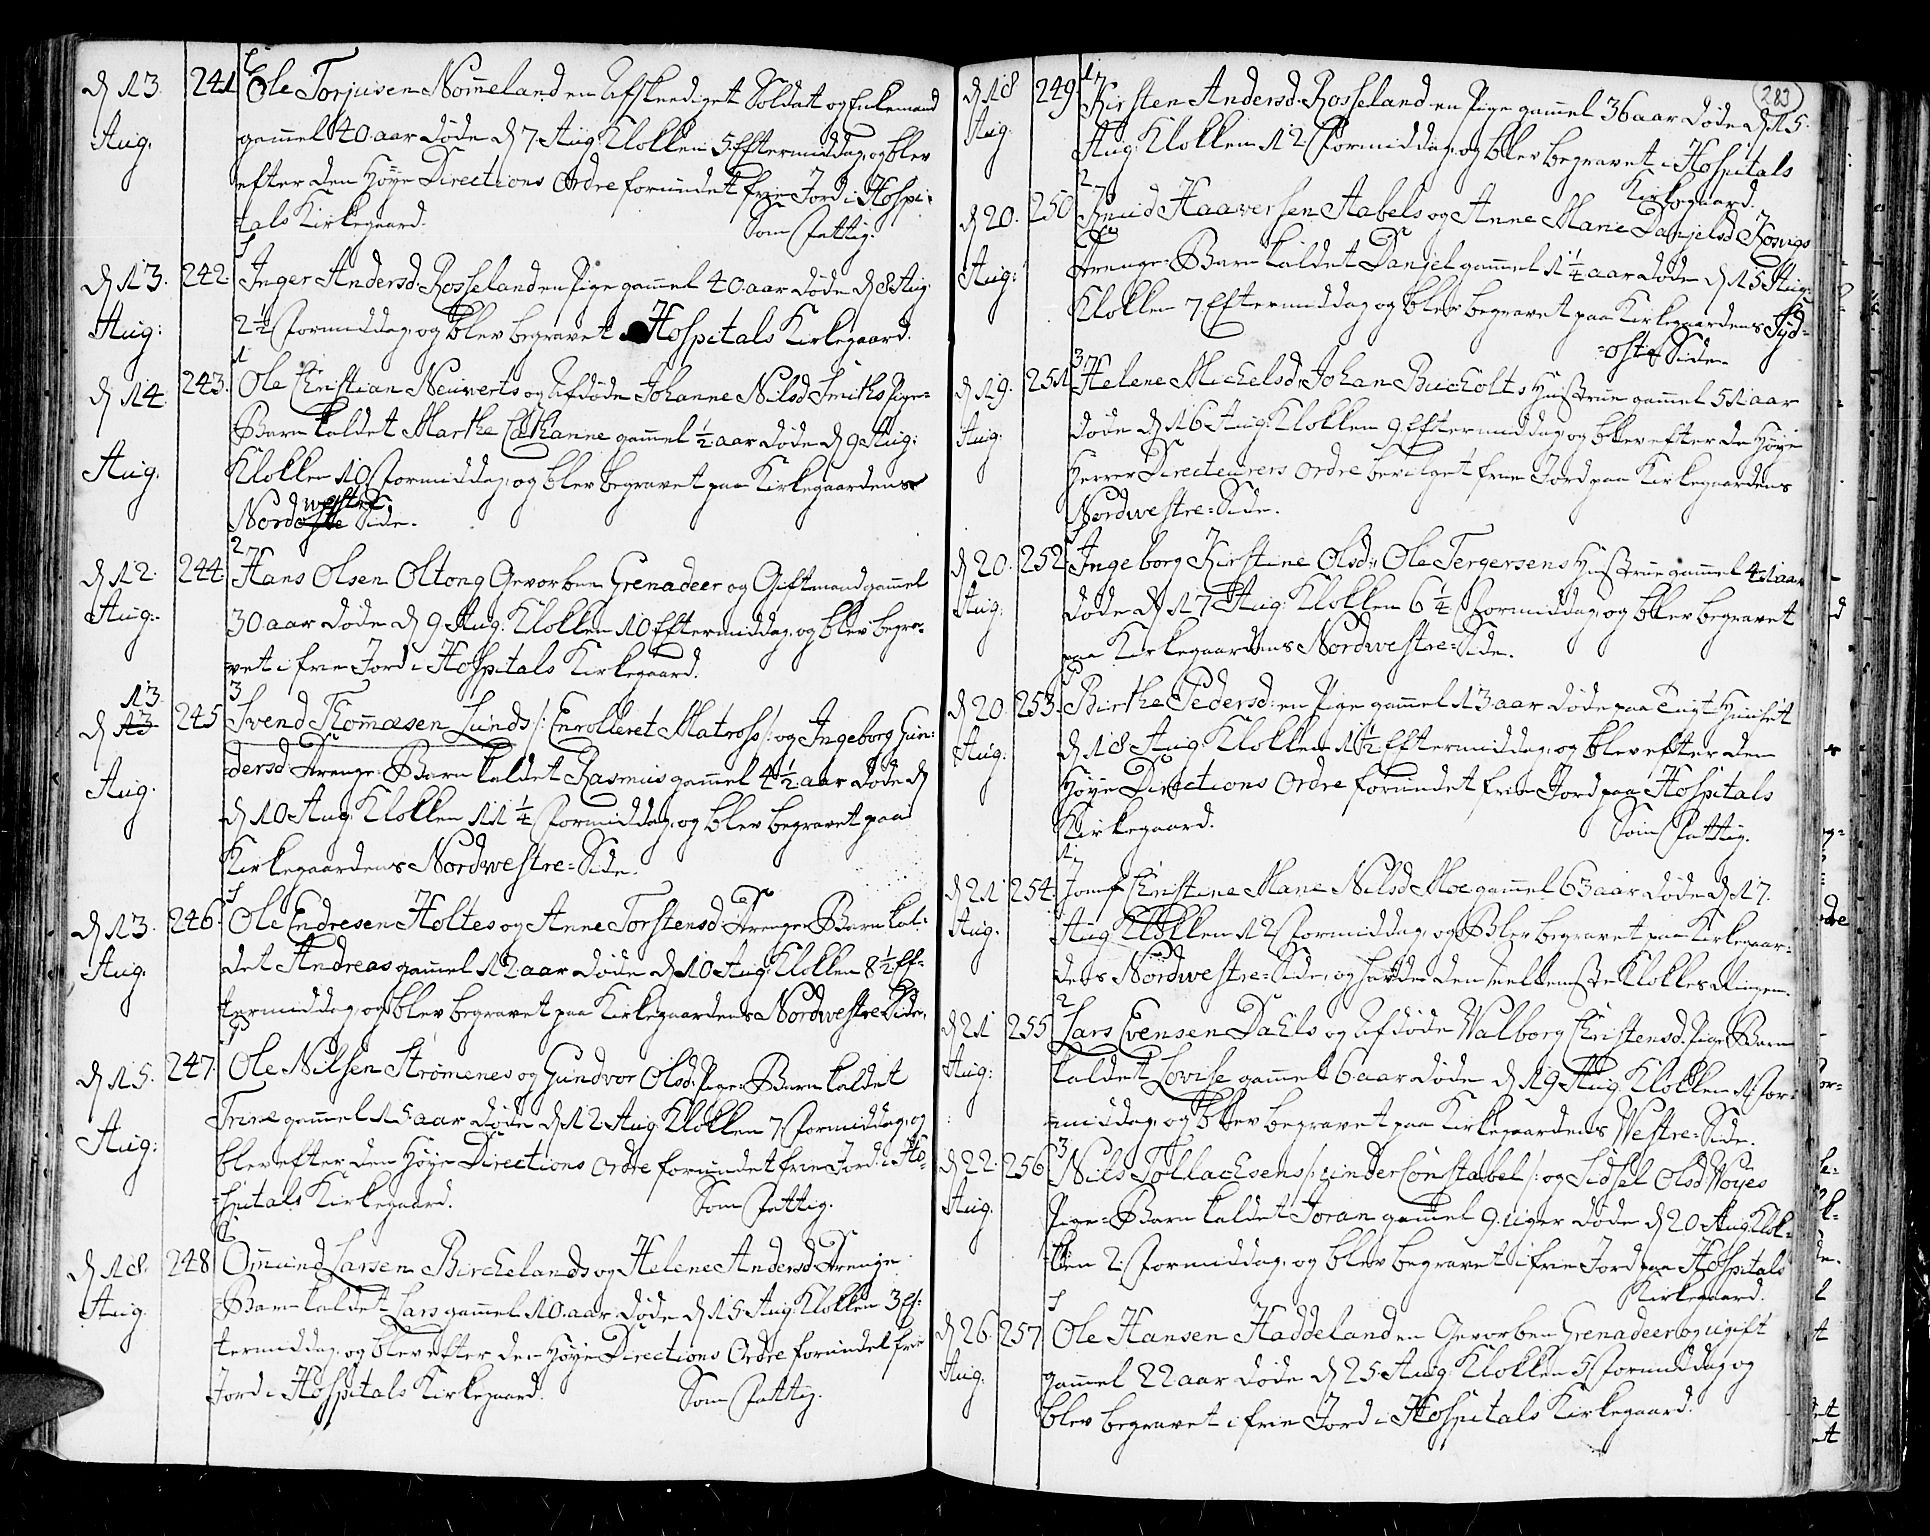 d 13. Aug. 241. Ole Torjusen Nommeland en Afskeediget Soldat og Enkemand
gammel 40 aar døde d 7 Aug: Klokken 5 Eftermiddag, og blev
efter den Høye Directions Ordre forundet frie Jord i Hospi-
tals Kirkegaard. Som Fattig.
d 13. Aug: 242. Inger Andersd. Rosseland en Pige gammel 40 aar døde d 8 Aug.
2½ Formiddag, og blev begravet i Hospitals Kirkegaard.
1
d 14. Aug. 243. Ole Christian Neuwerts og Afdøde Johanne Nilsd Smiths Pige-
Barn kaldet Marthe Cathanne gammel ½ aar døde d 9 Aug:
Klokken 10 Formiddag, og blev begravet paa Kirkegaardens
Nordwestre Side.
2
d 12. Aug: 244. Hans Olsen Oltong Gevorben Grenadeer og Giftmand gammel
30 aar døde d 9 Aug. Klokken 10 Eftermiddag, og blev begra-
vet i frie Jord i Hospitals Kirkegaard.
3
d 13 Aug. 245 Svend Thommæsen Lunds /: Enrolleret Matross :/ og Ingeborg Gun-
dersd Drenge-Barn kaldet Rasmus gammel 4½ aar døde d
d 10 Aug: Klokken 11¼ Formiddag, og blev begravet paa
Kirkegaardens Nordwestre-Side.
d 13. Aug. 246. Ole Endresen Holtes og Anne Torstensd Drenge Barn kal-
det Andreas gammel 12 aar døde d 10 Aug: Klokken 8½ Ef-
termiddag, og blev begravet paa Kirkegaardens Nordwestre Side.
d 15. Aug: 247. Ole Nilsen Strømenes og Gundvor Olsd. Pige-Barn kaldet
Trine gammel 15 aar døde d 12 Aug: Klokken 7 Formiddag, og
blev efter den Høye Directions Ordre forundet frie Jord i Ho-
spitals Kirkegaard. Som Fattig.
d 18. Aug. 248 Ommund Larsen Birchelands og Helene Andersd Drenge
Barn kaldet Lars gammel 10 aar døde d 15 Aug: Klokken 3 Ef-
termiddag, og blev efter den Høye Directions Ordre forundet frie
Jord i Hospitals Kirkegaard. Som Fattig.
283
1
d 18 Aug. 249 Kirsten Andersd. Rosseland en Pige gammel 36 aar døde d 15.
Aug: Klokken 12 Formiddag, og blev begravet i Hospitals
Kirkegaard.
2
d 20. Aug: 250 Knud Haaversen Aabels og Anne Marie Danjelsd Kosvigs
Drenge-Barn kaldet Danjel gammel 1¼ aar døde d 15 Aug:
Klokken 7 Eftermiddag og blev begravet paa Kirkegaardens Syd-
-oste Side.
3
d 19. Aug. 251 Helene Michelsd. Johan Bucholts Hustrue gammel 51 aar
døde d 16 Aug: Klokken 9 Eftermiddag, og blev efter de Høye
Herrer Directeurers Ordre bevilget frie Jord paa Kirkegaardens
Nordwestre-Side.
d 20. Aug: 252 Ingeborg Kirstine Olsd: Ole Tergersens Hustrue gammel 41 aar
døde d 17 Aug: Klokken 6¼ Formiddag, og blev begravet
paa Kirkegaardens Nordwestre-Side.
d 20 Aug. 253. Birthe Pedersd: en Pige gammel 13 aar døde paa Tugt Huuset
d 18 Aug: Klokken 1½ Eftermiddag, og blev efter den
Høye Directions Ordre forundet frie Jord paa Hospitals
Kirkegaard. Som Fattig.
1
d 21 Aug. 254. Jomf Christine Marie Nilsd Moe gammel 63 aar døde d 17.
Aug Klokken 12 Formiddag, og Blev begravet paa Kirkegaar-
dens Nordwestre-Side, og havde den Klokkes Ringen.
2
d 21 Aug: 255 Lars Evensen Dahls og Afdøde Walborg Christensd. Pige Barn
kaldet Lovise gammel 6 aar døde d 19 Aug: Klokken 1 For-
middag, og blev begravet paa Kirkegaardens Westre-Side.
3
d 22. Aug. 256 Nils Tollachsens /: under Constabel :/ og Sidsel Olsd Woyes
Pige-Barn kaldet Joran gammel 9. uger døde d 20 Aug: Klok-
ken 2 Formiddag, og blev begravet i frie Jord paa Hospitals
Kirkegaard.
d 26. Aug. 257 Ole Hansen Haddeland en Gevorben Grenadeer og ugift
gammel 22 aar døde d 25 Aug: Klokken 5 Formiddag og
blev begravet i frie Jord i Hospitals Kirkegaard.